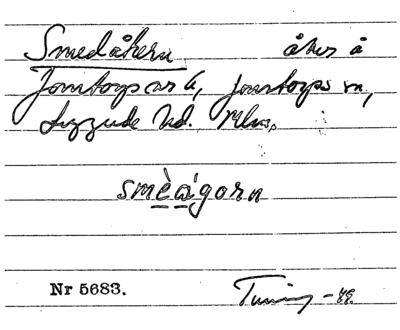 Smedåkern åker å
Jonstorps nr 6, Jonstorps sn,
Luggude hd. Mlm.
smè̱a̱´gorn
Nr 5683. Tuning -49.